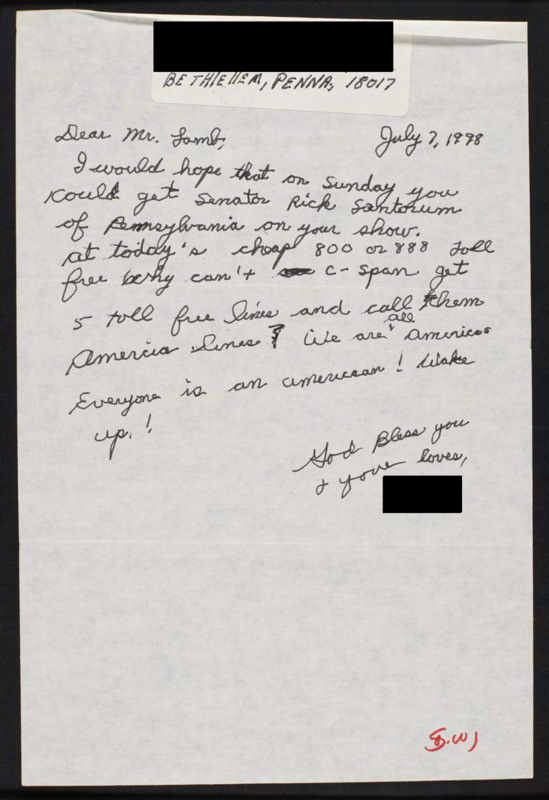 BETHlEHEM, PENNA, 18017
July 7, 1998
Dear Mr. Lamb,
I would hope that on Sunday you
could get Senator Rick Santorum
of Pennsylvania on your show.
at today's cheap 800 or 888 toll
free why can't C-span get
5 toll free lines and call them
Amercia lines? We are all americas
Everyone is an amerucan! Wake
up.!
God Bless you
& your loves,